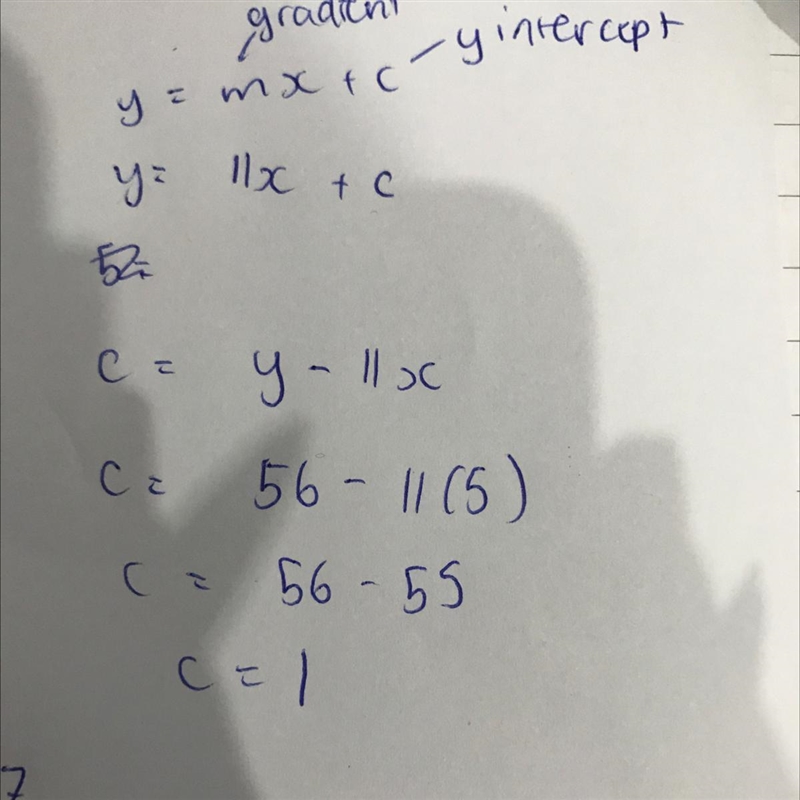 gradient
y = mx + c – y intercept
y = 11x + c
52
c = y - 11x
c = 56 - 11(5)
c = 56 - 55
c = 1
7